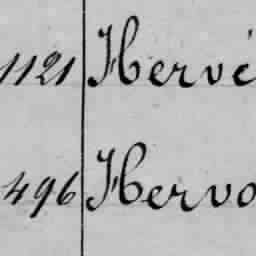 1121 Hervé
496 Hervo